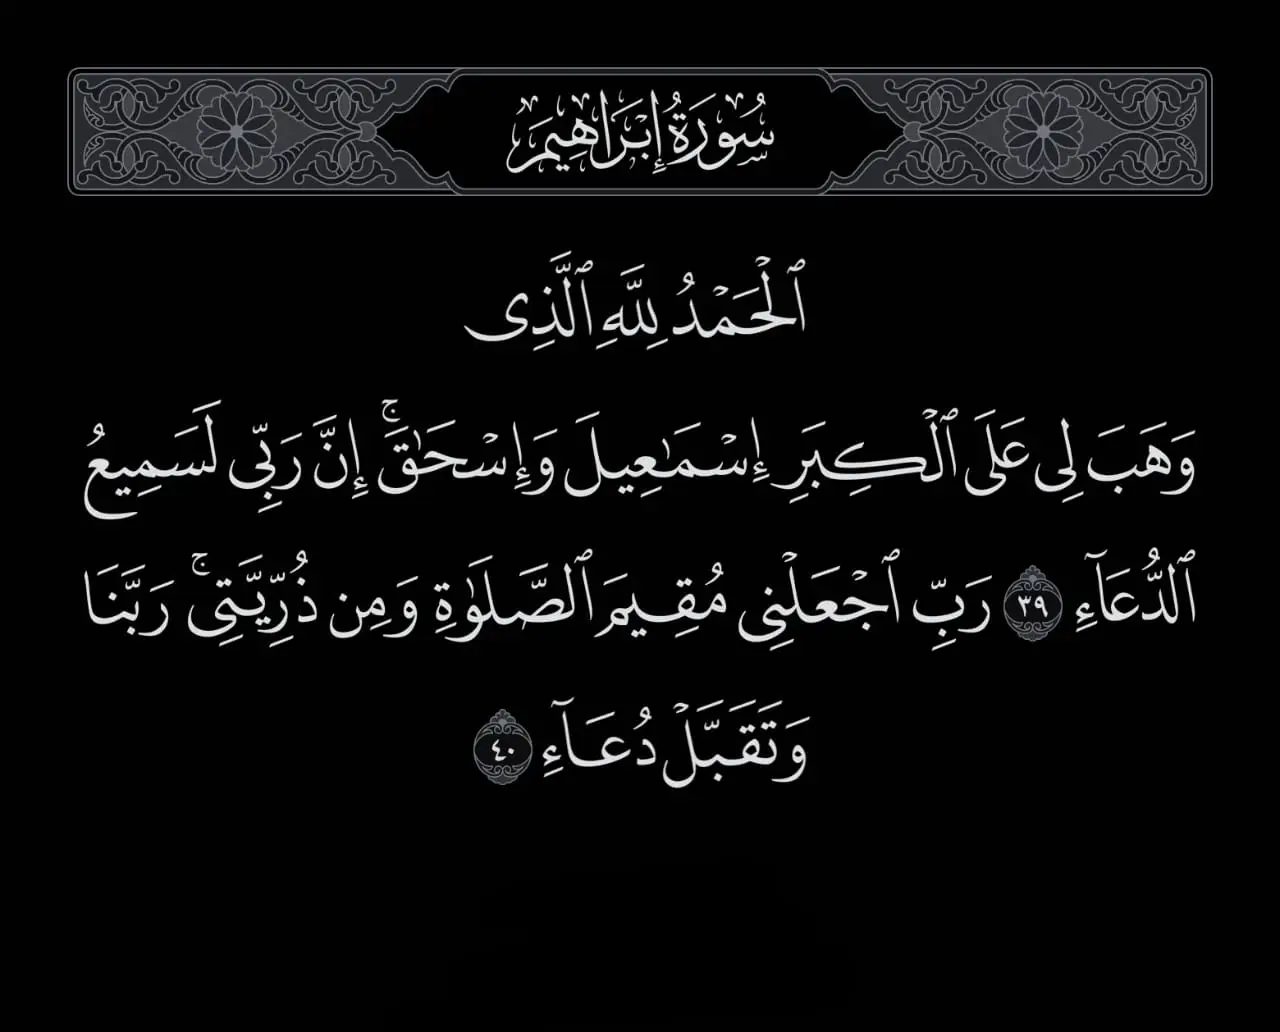 سُورَةُ إِبْرَاهِيمَ
ٱلْحَمْدُ لِلَّهِ ٱلَّذِى
وَهَبَ لِى عَلَى ٱلْكِبَرِ إِسْمَـٰعِيلَ وَإِسْحَـٰقَ ۚ إِنَّ رَبِّى لَسَمِيعُ
ٱلدُّعَآءِ ٣٩ رَبِّ ٱجْعَلْنِى مُقِيمَ ٱلصَّلَوٰةِ وَمِن ذُرِّيَّتِى ۚ رَبَّنَا
وَتَقَبَّلْ دُعَآءِ ٤٠